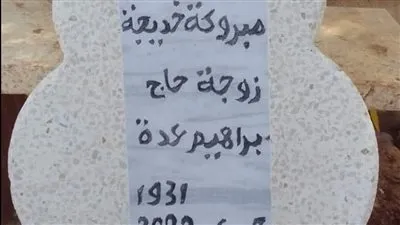 مبروكة خديجة
زوجة حاج
براهيم عدة
1931